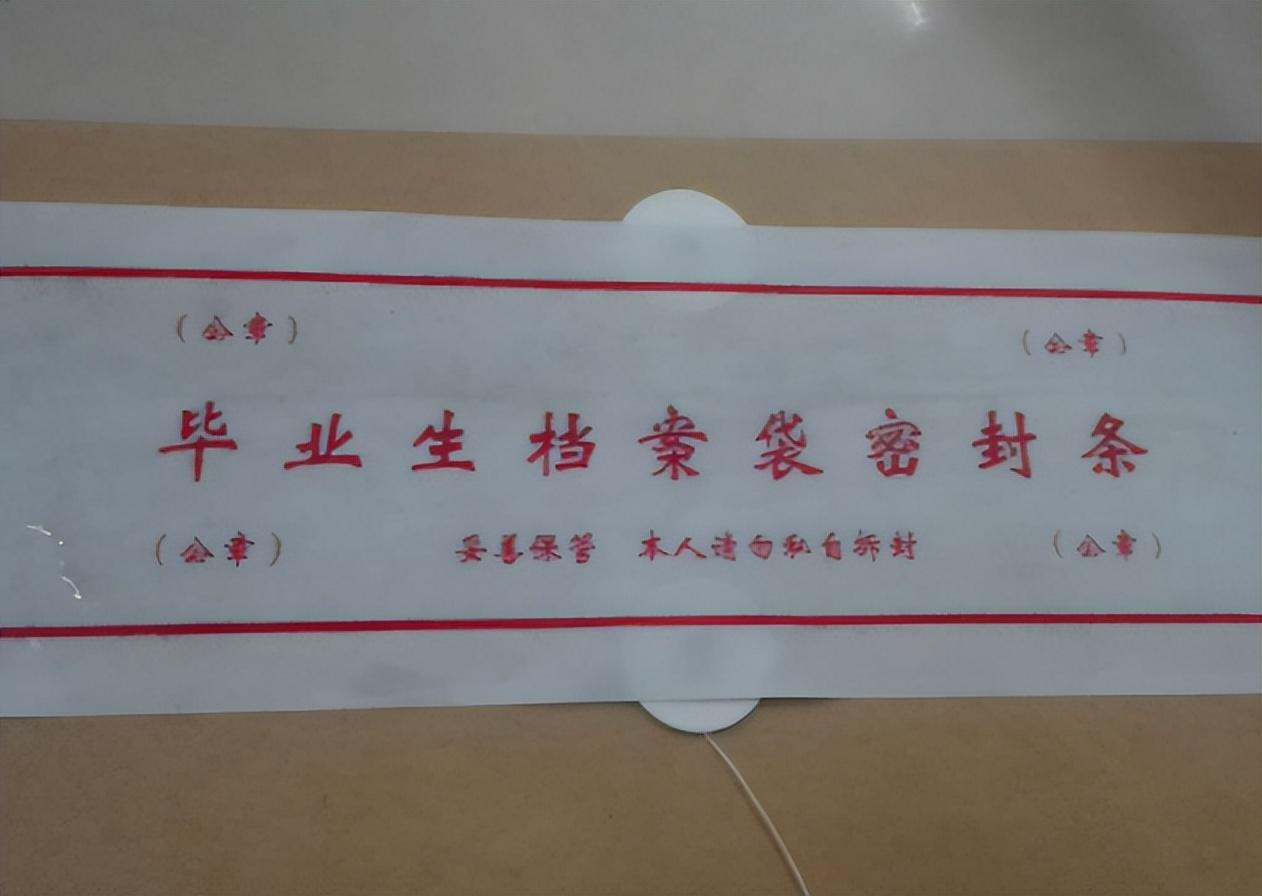 (公章) (公章)
毕业生档案袋密封条
(公章) 妥善保管 本人请勿私自拆封 (公章)